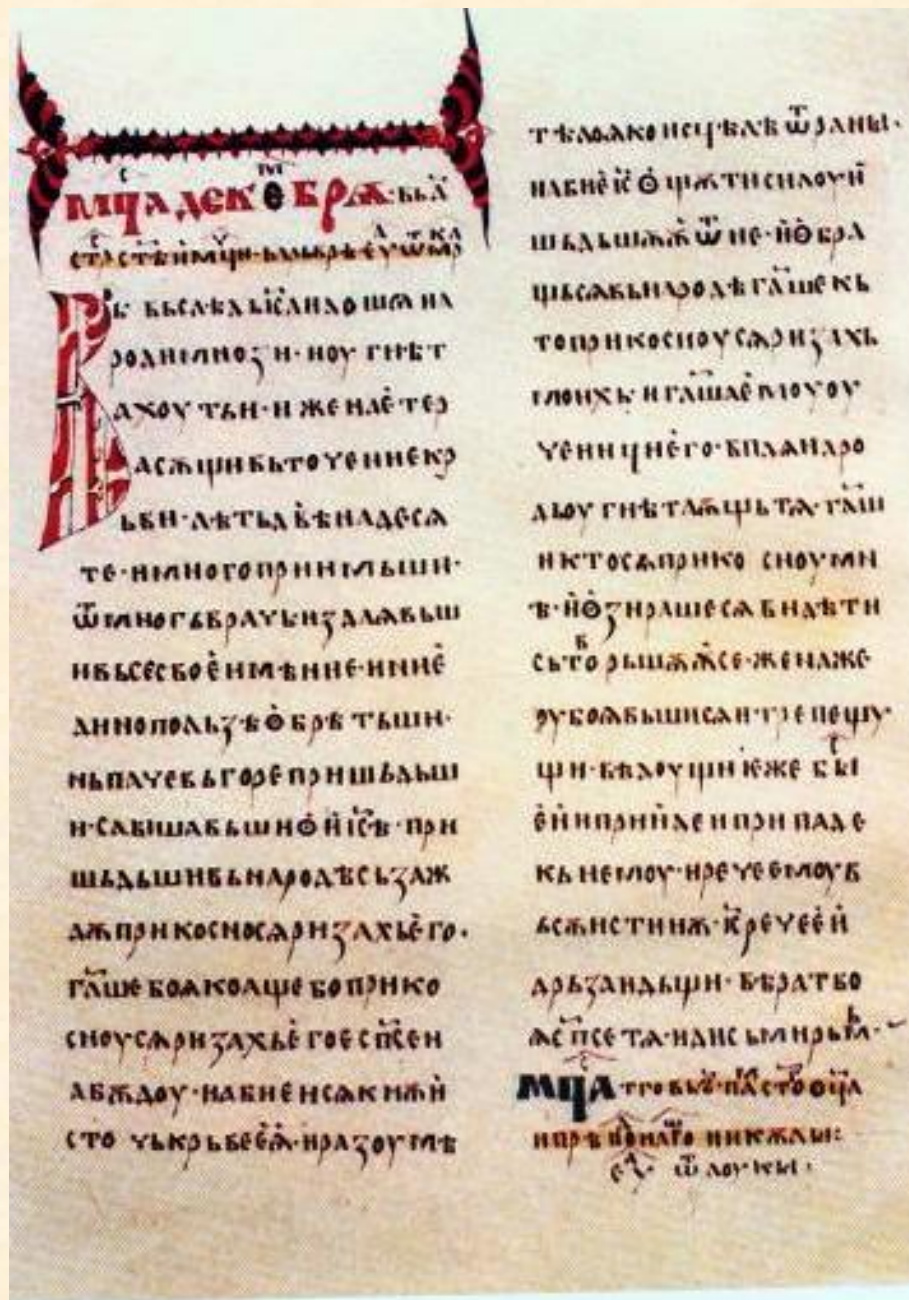 мц҃а декебрѧ·въ д҃
ст҃рсти ст҃ѣи мц҃и·варварѣ еу ѿ мр
Въ въслѣдъ ꙇс҃а идошѧ на
роди мнози·и оугнѣт
ахоу тьи·и жена етер
а сѫщи вь точение кр
ьви·лѣть дъвѣнадесѧ
те·и много приимъши·
ѿ многъ врачь·и издаѧвьш
и вьсе свое имѣние·и ни е
дино ползѣ ѻбрѣтъши·
нь паче вь горе пришьдьш
и·слꙑшавьши ѻ и҃св·при
шьдьши вь народѣ сьзаж
дѫ прикосносѧ ризахь его·
гл҃аше бо ꙗко аще бо прико
сноусѧ ризахь его е сп҃сен
а бѫдоу·и абие исѧкнѫ и
сточькрьве еѧ·и разоумѣ
тѣломь ꙗко исцѣлѣ ѿ раны·
и абие іс҃ ѻщѫти силоу и
шьдьшѫѫ ѿ не·и ѻбра
щьсѧ вь народѣ гл҃аше кь
то прикосноусѧ ризахь
моихь·и гл҃аша емоу оу
ченици его·видѧ народ
ѡоугнѣтаѫщь тѧ·гл҃аш
и кто сѧ прикосноу мн
ѣ·и ѻзирашесѧ видѣти
сьтворьшѫѫ се·жена же
оубоꙗвьшисѧ и·трепещу
щи·вѣдоущи еже быс҃
еи и приде и припаде
кь немоу·и рече емоу в
ьсѫ истинѫ·іс҃ рече еи
дрьзаи дьщи·вѣра тво
ѣ сп҃се тѧ·иди сь миромь·
мц҃а
ел҃ ѿ лоукы·